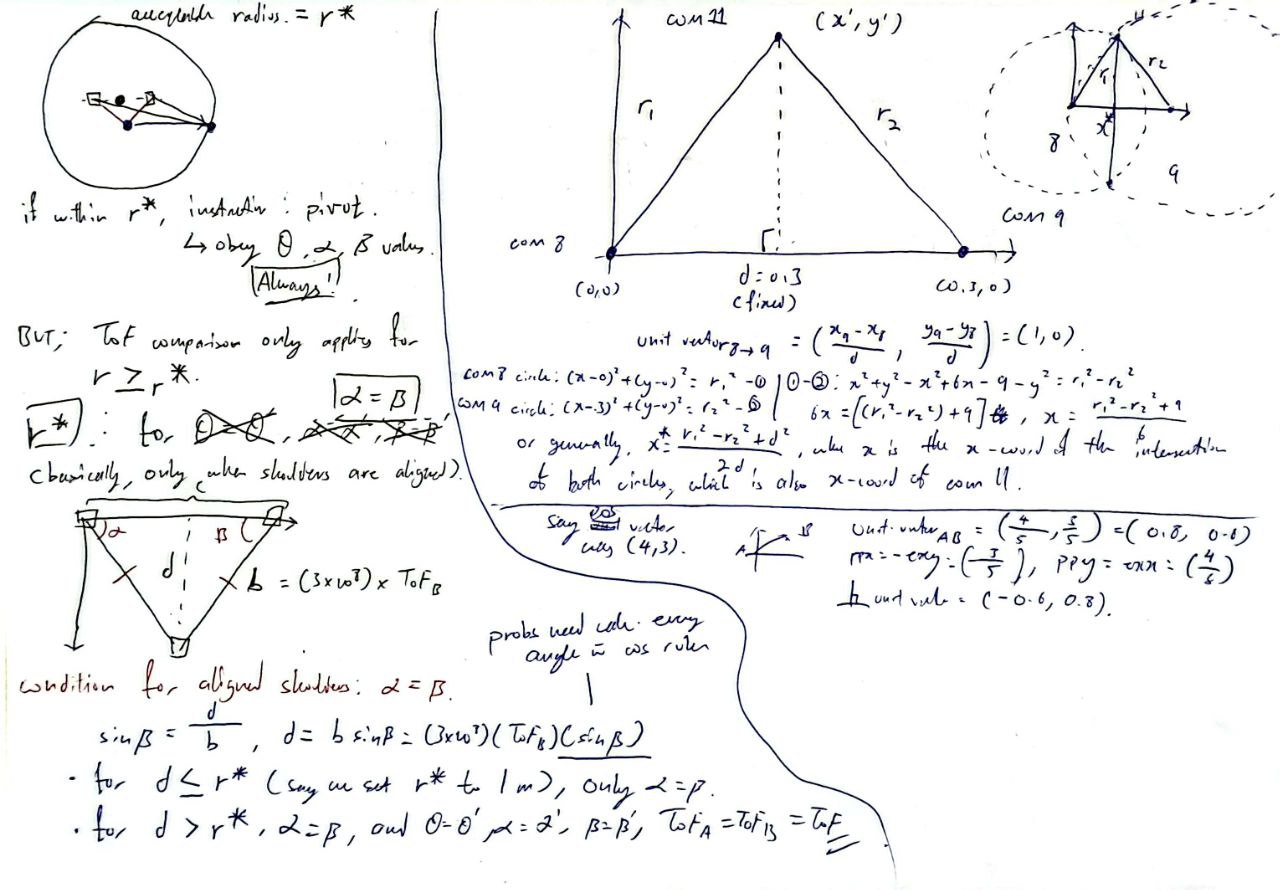 acceptable radius. = r*
if within r*, instruction : pivot.
↳ obey θ, α, β values.
Always!
BUT; ToF comparison only applies for
r ≥ r*.
α = β
r* ∴ for θ=θ', α=α', β=β'
(basically, only when shoulders are aligned).
c
α β
d
b = (3x10⁸) x ToF_B
condition for aligned shoulders: α = β.
probs need calc. every
angle w cos rule
sinβ = d/b, d = b sinβ = (3x10⁸)(ToF_B)(sinβ)
· for d ≤ r* (say we set r* to 1m), only α=β.
· for d > r*, α=β, and θ=θ', α=α', β=β', ToF_A = ToF_B = ToF
com 11 (x', y')
r₁ r₂
com 8 com 9
(0,0) d=0.3 (0.3,0)
(fixed)
11
r₁ r₂
x*
8 9
unit vector 8→9 = (x₉-x₈/d, y₉-y₈/d) = (1,0).
com 8 circle: (x-0)²+(y-0)² = r₁² -① | ①-②: x²+y²-x²+6x-9-y² = r₁²-r₂²
com 9 circle: (x-3)²+(y-0)² = r₂² -② | 6x = [(r₁²-r₂²)+9], x = r₁²-r₂²+9/6
or generally, x* = r₁²-r₂²+d²/2d, where x is the x-coord of the intersection
of both circles, which is also x-coord of com 11.
say pos vector
was (4,3).
A B
unit vector AB = (4/5, 3/5) = (0.8, 0.6)
ppx = -exy = (-3/5), ppy = exx = (4/5)
⊥ unit vector = (-0.6, 0.8).